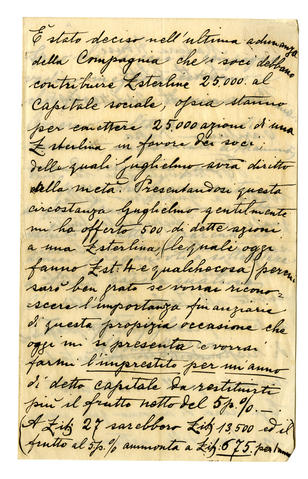 È stato deciso nell'ultima adunanza
della Compagnia che i soci debbano
contribuire Lsterline 25.000. al
Capitale sociale, ossia stanno
per emettere 25.000 azioni di una
Lsterlina in favore dei soci;
delle quali Guglielmo avrà diritto
della metà. Presentandosi questa
circostanza Guglielmo gentilmente
mi ha offerto 500 di dette azioni
a una Lsterlina, (le quali oggi
fanno Lst. 4 e qualchecosa)
sarò ben grato se vorrai ricono-
scere l'importanza finanziaria
di questa propizia occasione che
oggi mi si presenta e vorrai
farmi l'imprestito per un anno
di detto capitale da restituirti
più il frutto netto del 5 p.% . —
(A Lit 27 sarebbero Lit 13,500 ed il
frutto al 5 p.% ammonta a Lit. 675. per 1 anno